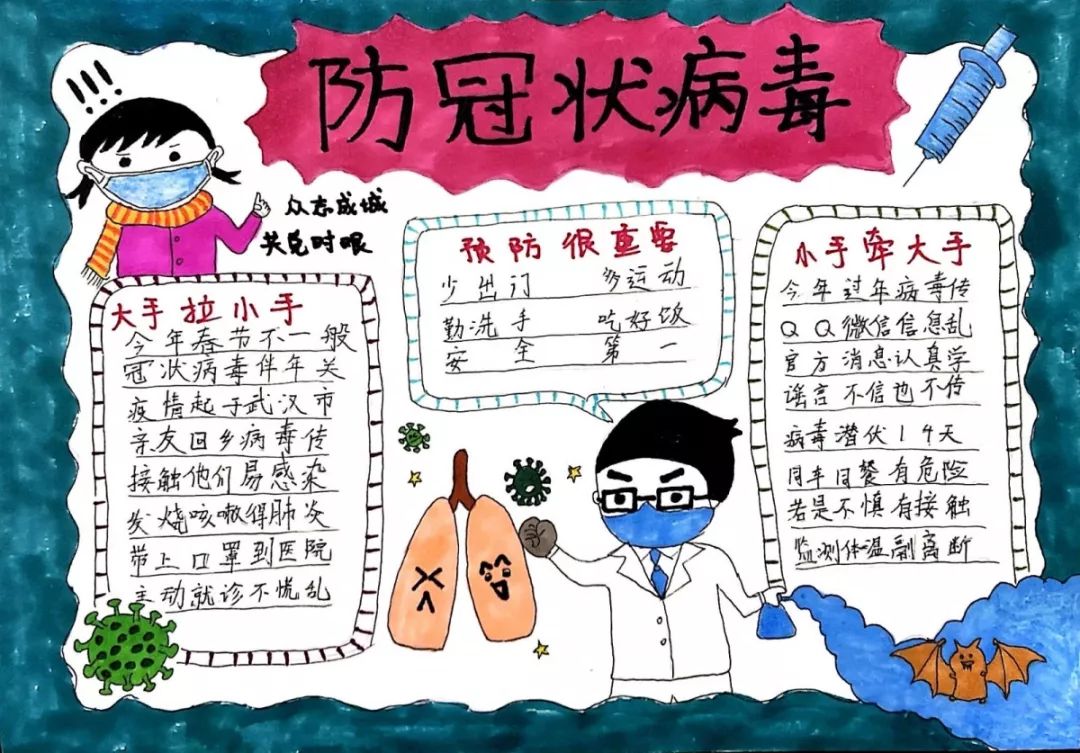 防冠状病毒
!!!
众志成城
共克时艰
大手拉小手
今年春节不一般
冠状病毒伴年关
疫情起于武汉市
亲友回乡病毒传
接触他们易感染
发烧咳嗽得肺炎
带上口罩到医院
主动就诊不慌乱
预防很重要
少出门 多运动
勤洗手 吃好饭
安全第一
小手牵大手
今年过年病毒传
QQ微信信息乱
官方消息认真学
谣言不信也不传
病毒潜伏14天
同车同餐有危险
若是不慎有接触
监测体温离断